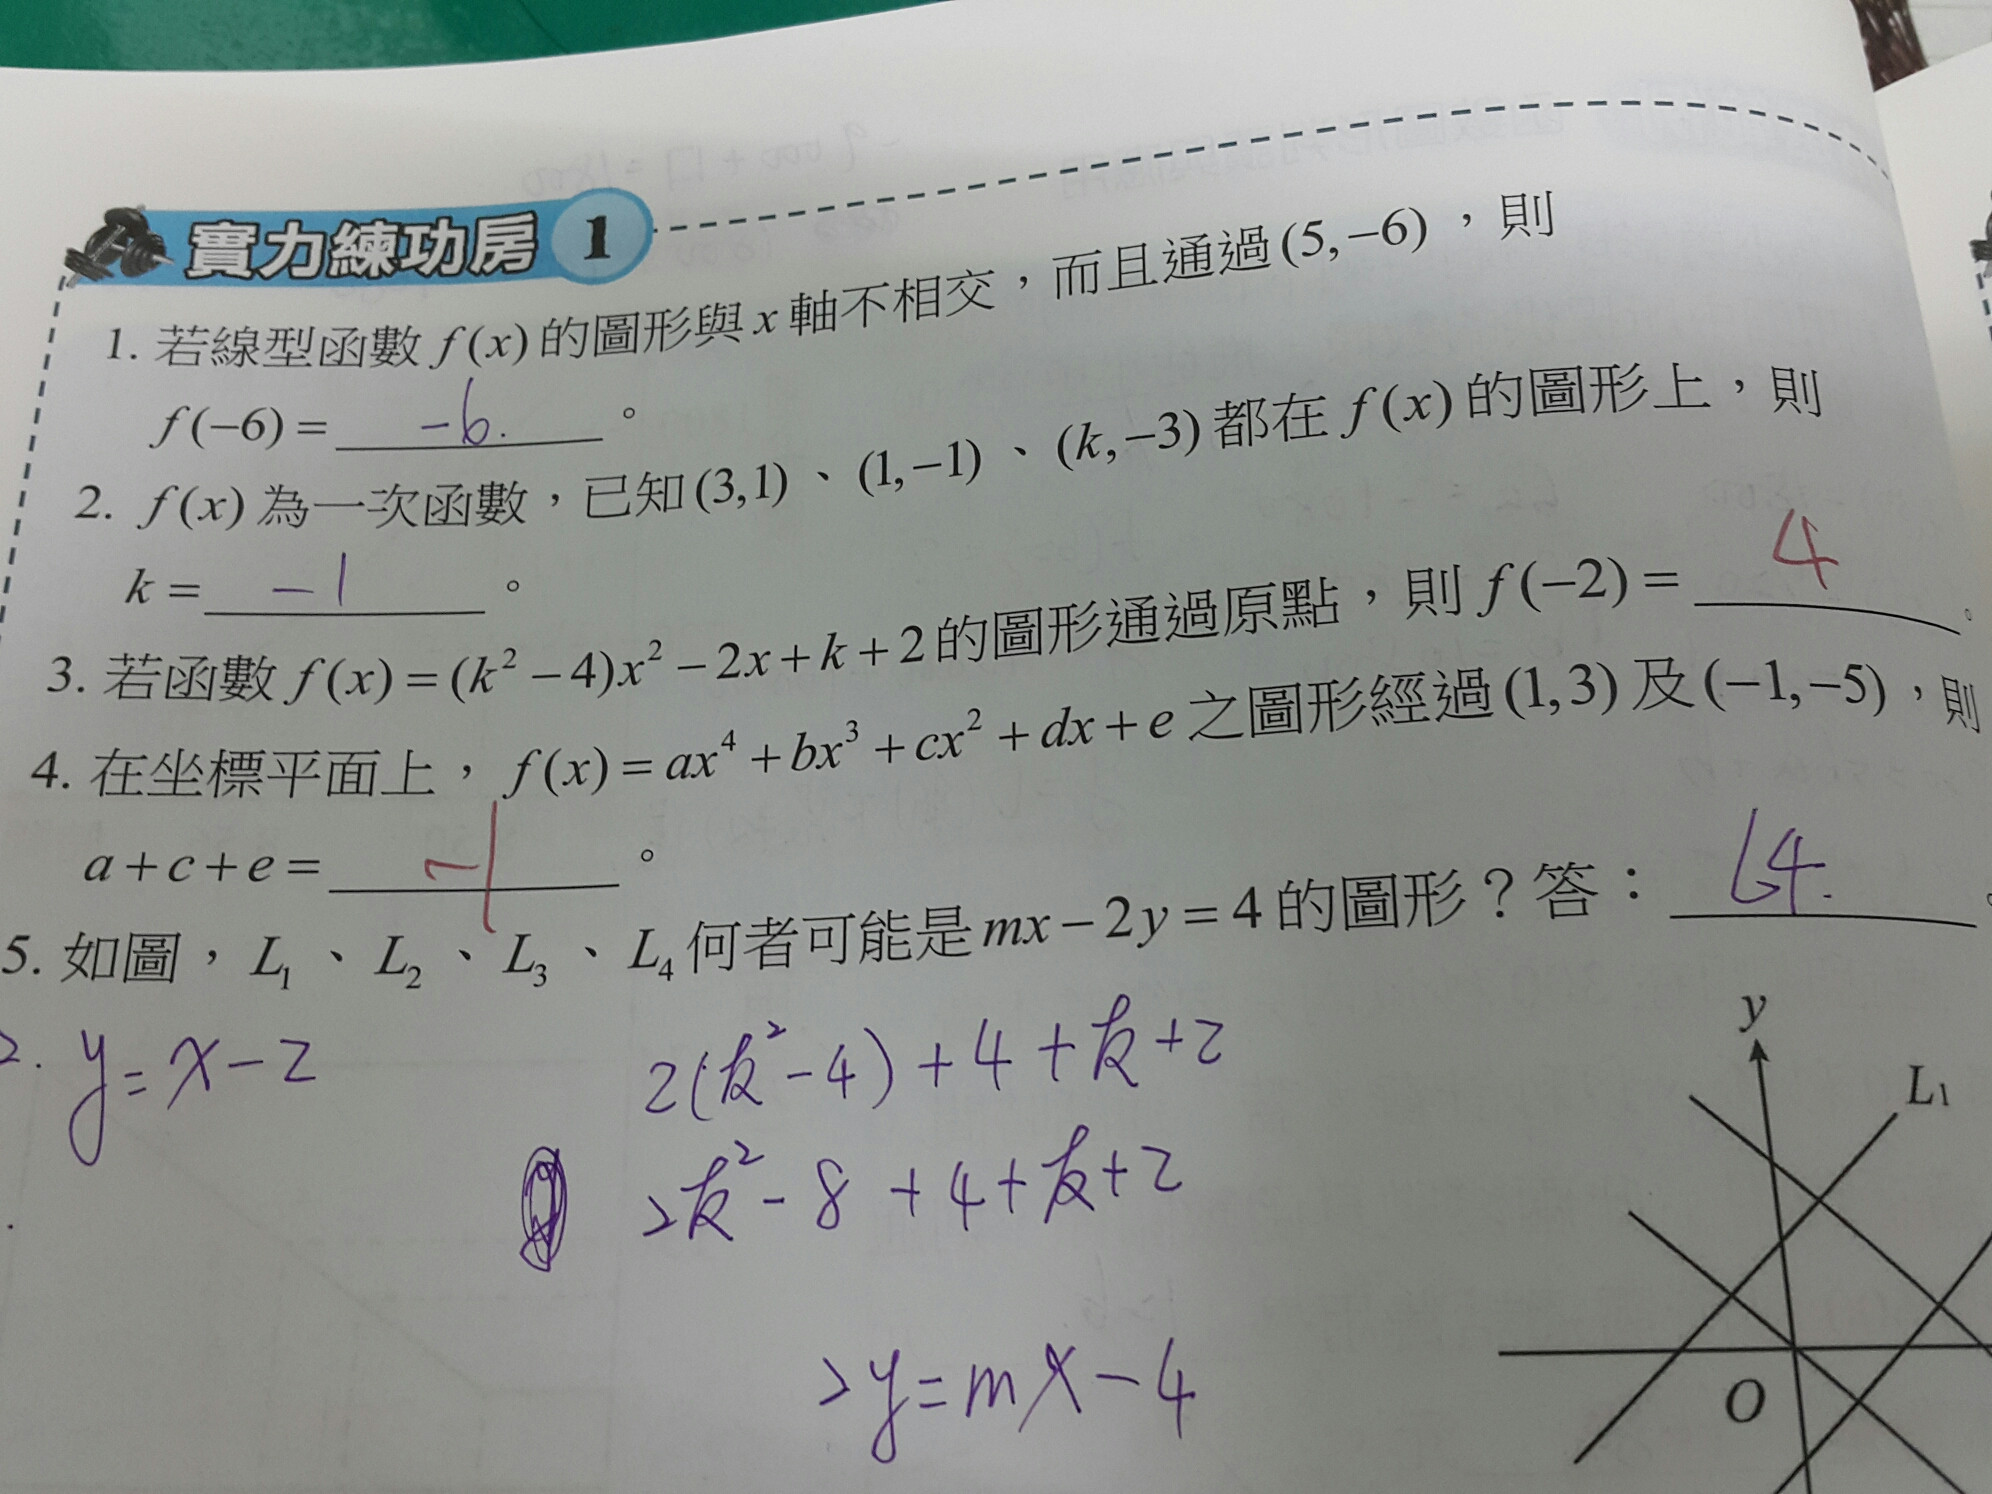 實力練功房 1
1. 若線型函數 f(x) 的圖形與 x 軸不相交，而且通過 (5,−6) ，則
f(−6) = -6. 。
2. f(x) 為一次函數，已知 (3,1) 、 (1,−1) 、 (k,−3) 都在 f(x) 的圖形上，則
k = -1 。
3. 若函數 f(x) = (k² − 4)x² − 2x + k + 2 的圖形通過原點，則 f(−2) = 4 。
4. 在坐標平面上， f(x) = ax⁴ + bx³ + cx² + dx + e 之圖形經過 (1,3) 及 (−1,−5) ，則
a + c + e = -1 。
5. 如圖， L₁ 、 L₂ 、 L₃ 、 L₄ 何者可能是 mx − 2y = 4 的圖形？答： L4. 。
2. y = x - 2
2(k² - 4) + 4 + k + 2
2k² - 8 + 4 + k + 2
2y = mx - 4
y
L₁
O